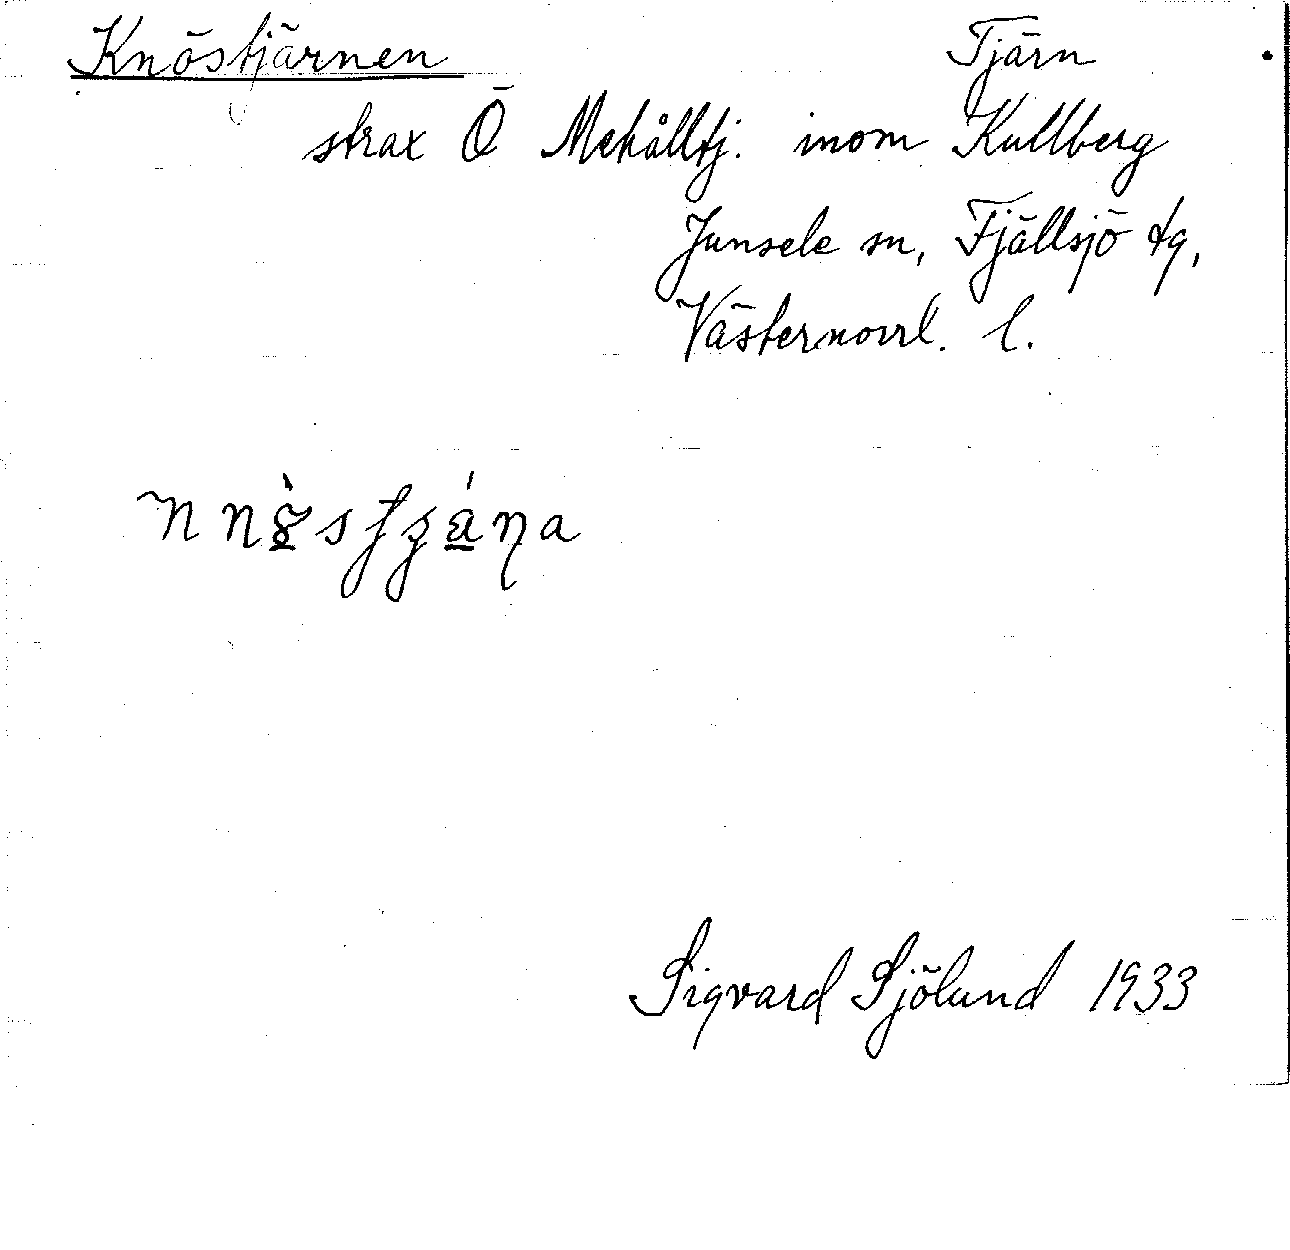 Knöstjärnen Tjärn
strax Ö Mehålltj. inom Kullberg
Junsele sn, Fjällsjö tg,
Västernorrl. l.
Sigvard Sjölund 1933